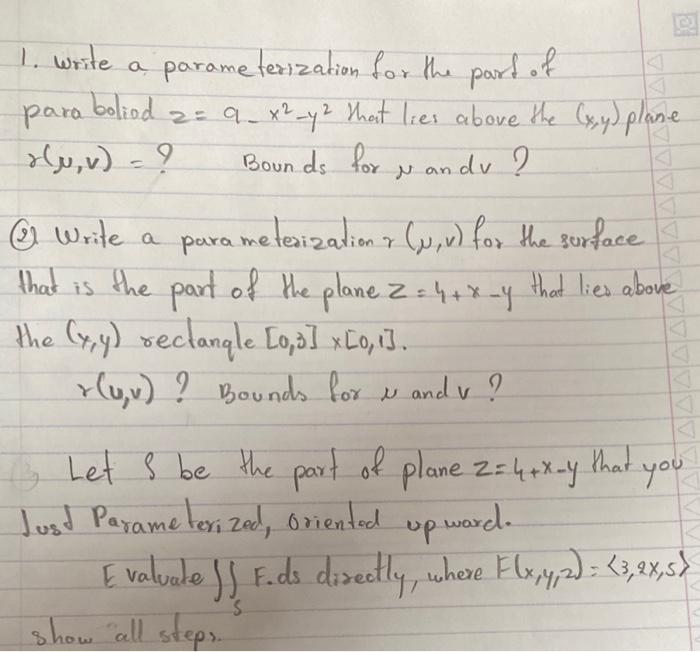 1. Write a parameterization for the part of
paraboliod z = 9 - x² - y² that lies above the (x,y) plane
r(u,v) = ? Bounds for u and v ?
② Write a parameterization r (u,v) for the surface
that is the part of the plane z = 4 + x - y that lies above
the (x,y) rectangle [0,3] × [0,1].
r(u,v) ? Bounds for u and v ?
Let S be the part of plane z = 4 + x - y that you
Just Parameterized, oriented upward.
Evaluate ∬_S F.ds directly, where F(x,y,z) = <3, 2x, 5>
show all steps.